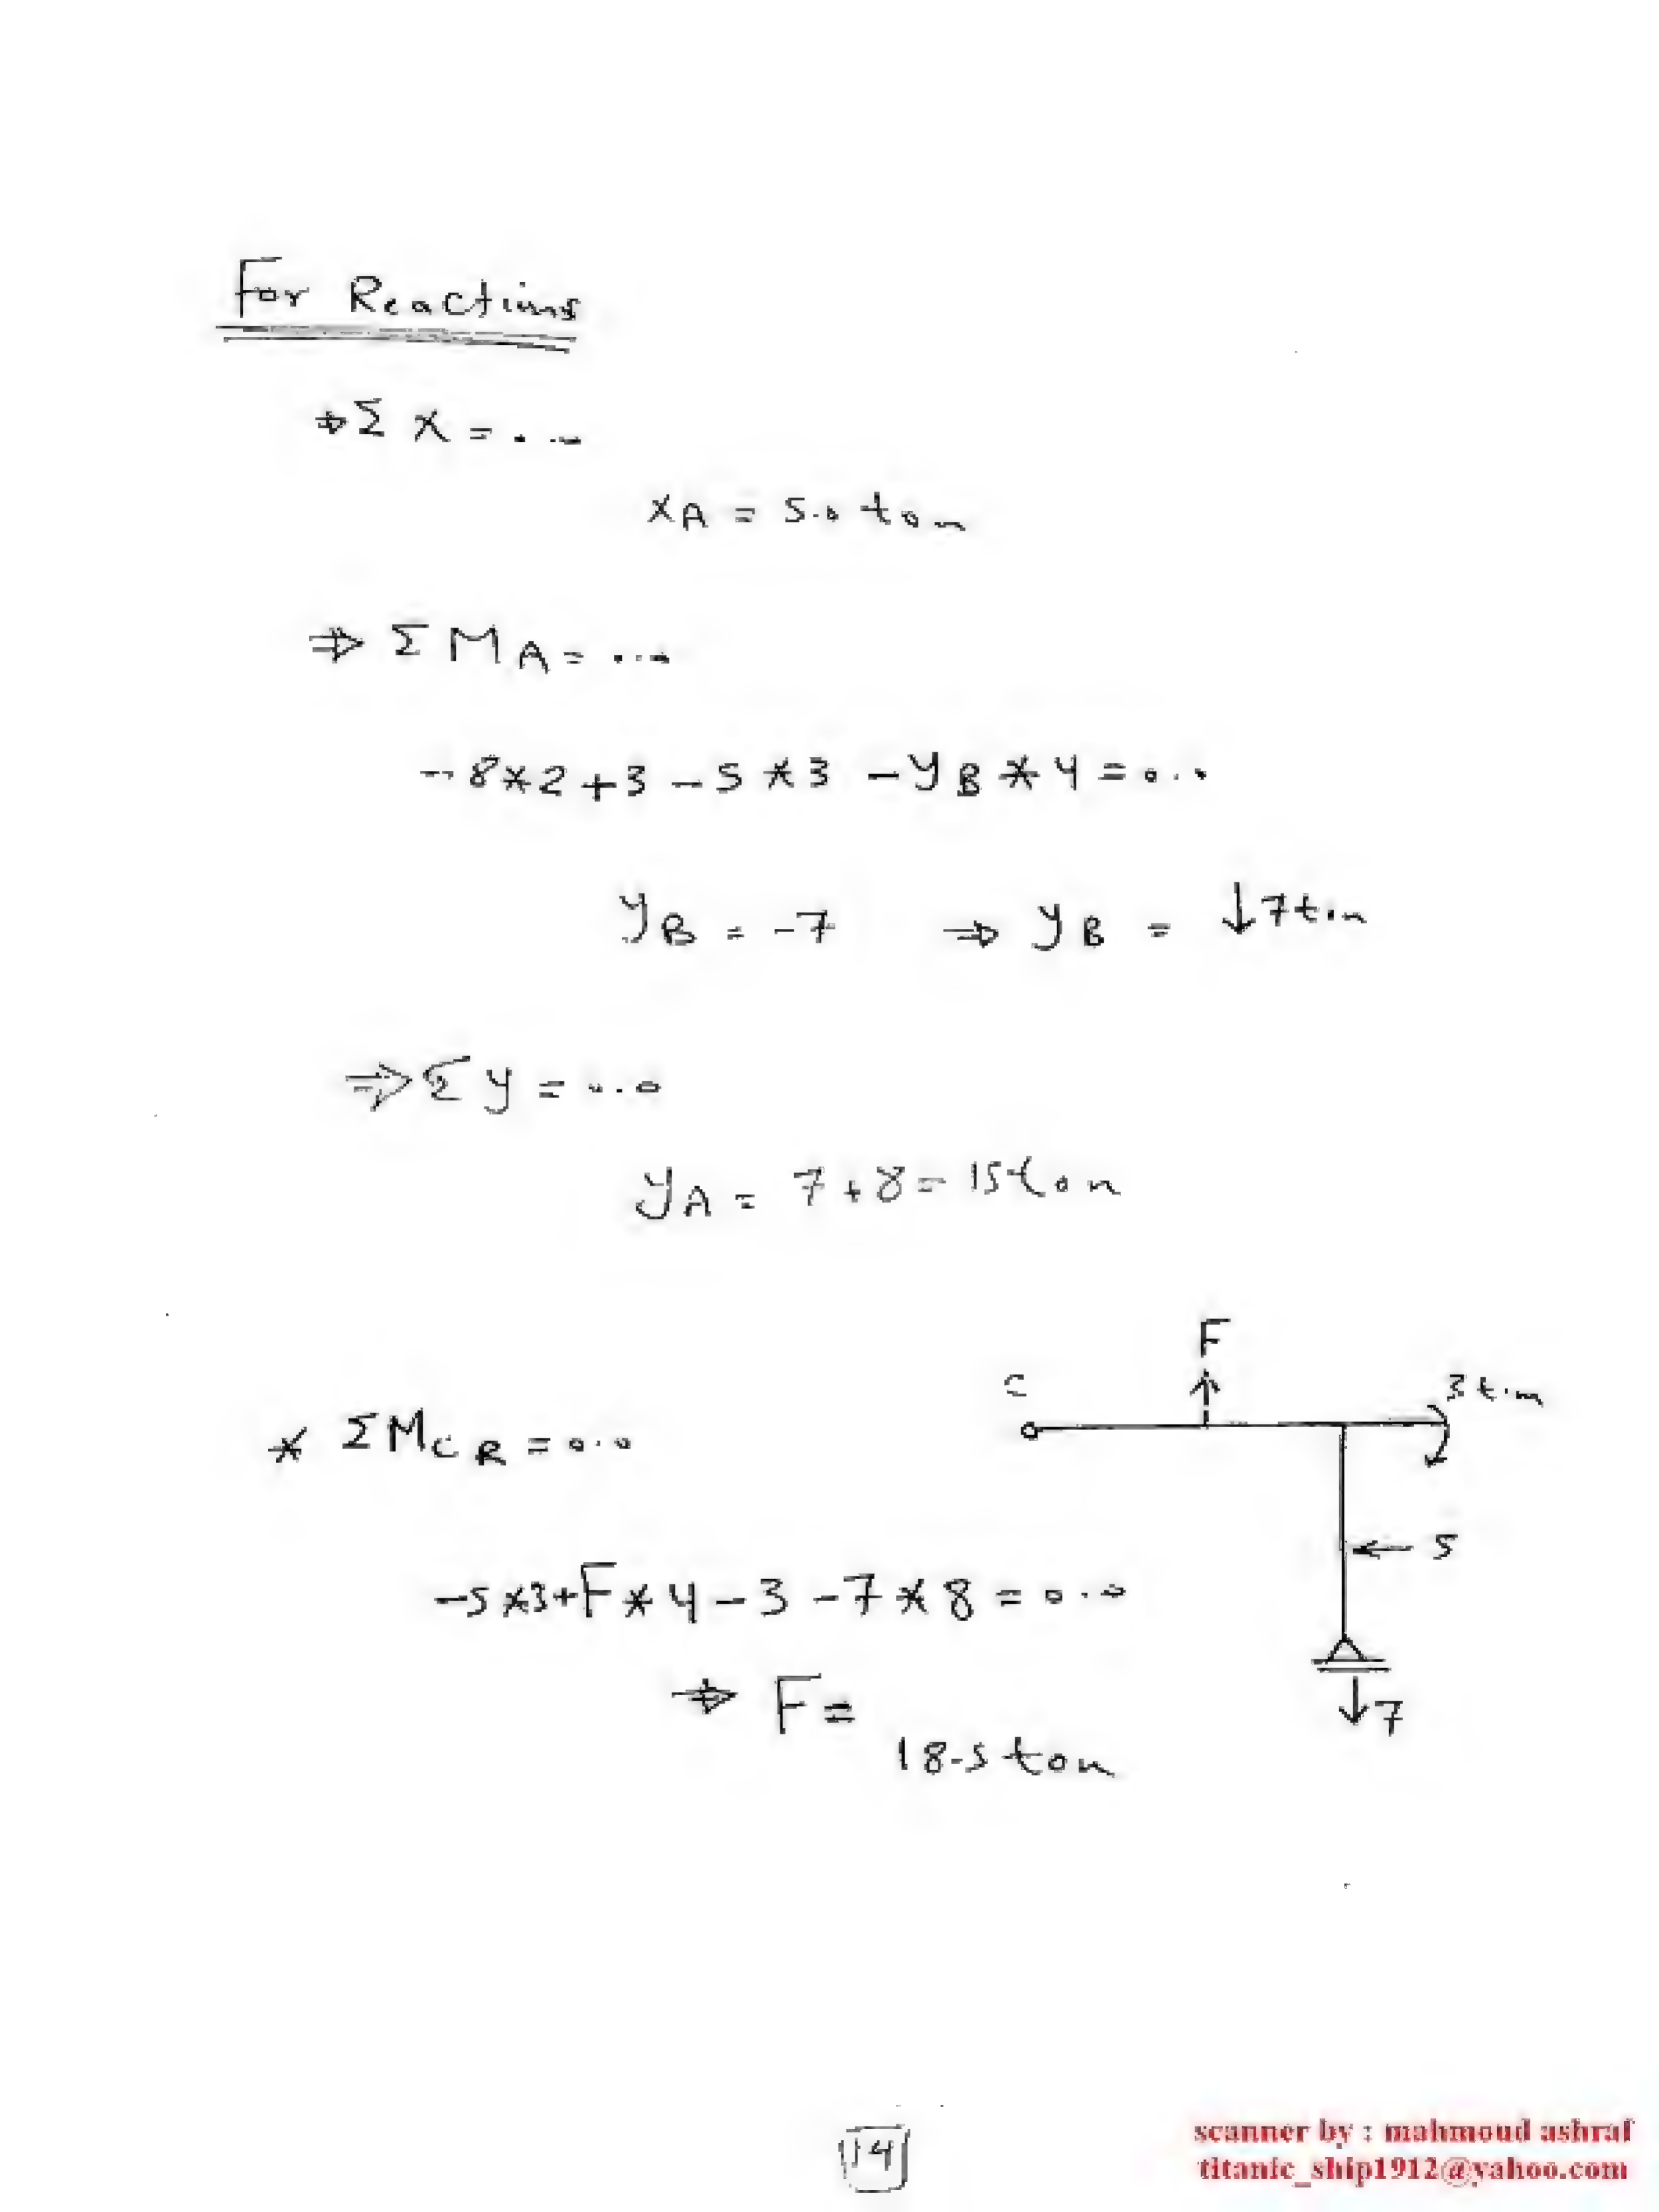 For Reactions
⇒ Σ X = 0.0
XA = 5.0 ton
⇒ Σ MA = 0.0
-8*2+3-5*3-yB*4=0.0
yB = -7 ⇒ yB = ↓7ton
⇒ Σ y = 0.0
yA = 7+8=15ton
F
C
3 t.m
* ΣMCR = 0.0
5
-5*3+F*4-3-7*8=0.0
⇒ F=
↓7
18.5 ton
14
scanner by : mahmoud ashraf
titanic_ship1912@yahoo.com